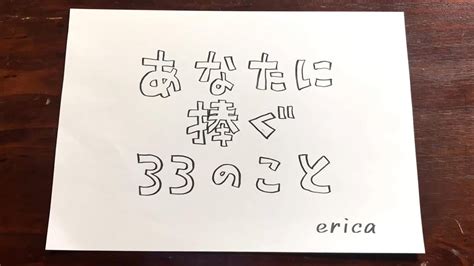 あなたに
捧ぐ
33のこと
erica